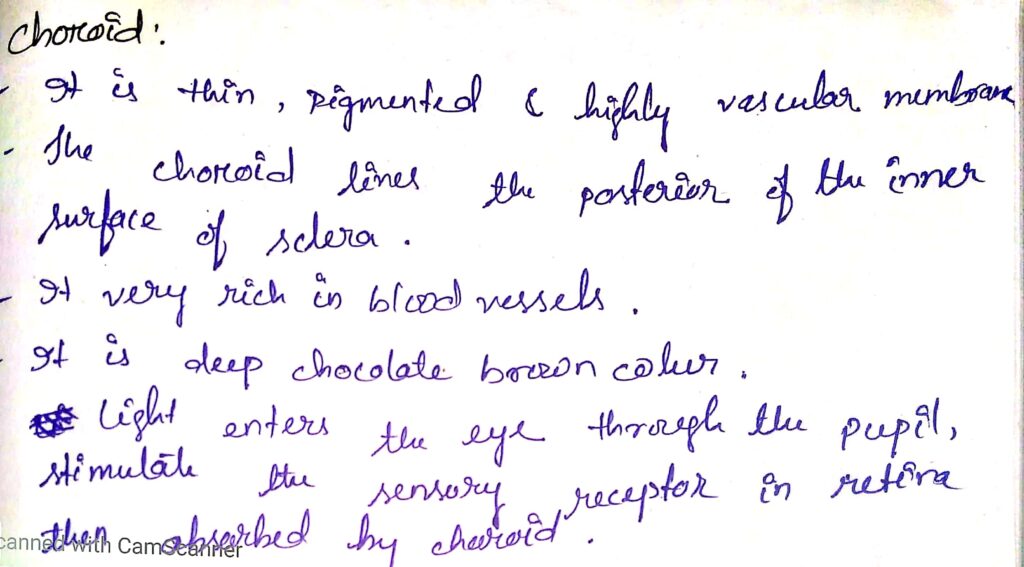 Choroid:
- It is thin, pigmented & highly vascular membrane
- The choroid lines the posterior of the inner
surface of sclera.
- It very rich in blood vessels.
- It is deep chocolate brown colur.
light enters the eye through the pupil,
stimulate the sensory receptor in retina
then absorbed by choroid.
canned with CamScanner